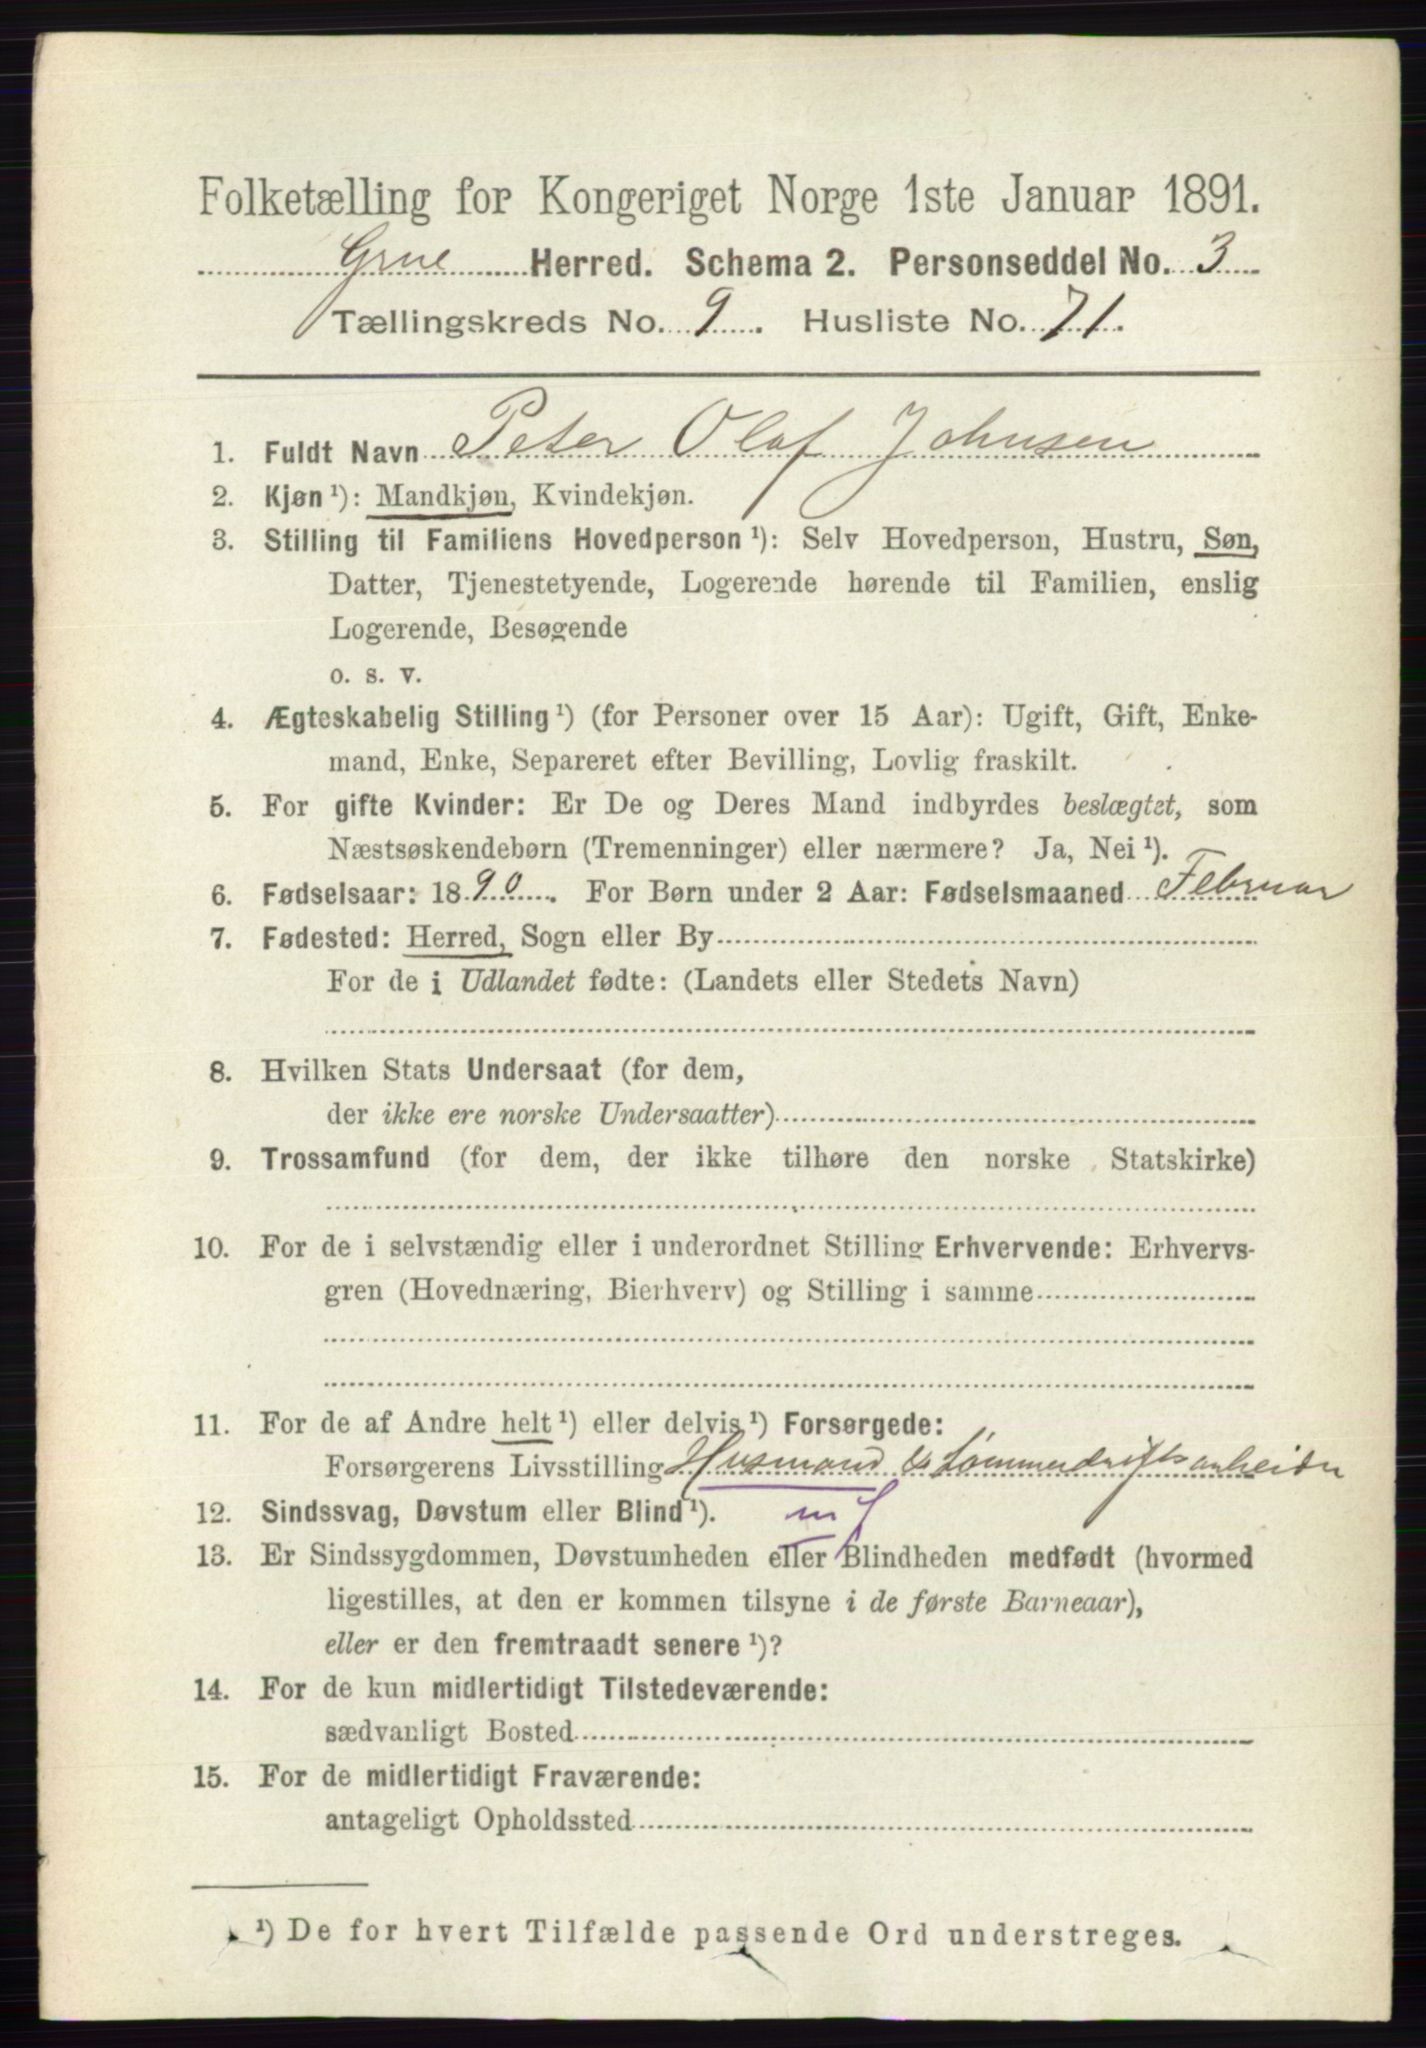 Folketælling for Kongeriget Norge 1ste Januar 1891.
Grue Herred. Schema 2. Personseddel No. 3
Tællingskreds No. 9. Husliste No. 71.
1. Fuldt Navn Peter Olaf Johnsen
2. Kjøn ¹): Mandkjøn, Kvindekjøn.
3. Stilling til Familiens Hovedperson ¹): Selv Hovedperson, Hustru, Søn,
Datter, Tjenestetyende, Logerende hørende til Familien, enslig
Logerende, Besøgende
o. s. v.
4. Ægteskabelig Stilling ¹) (for Personer over 15 Aar): Ugift, Gift, Enke-
mand, Enke, Separeret efter Bevilling, Lovlig fraskilt.
5. For gifte Kvinder: Er De og Deres Mand indbyrdes beslægtet, som
Næstsøskendebørn (Tremenninger) eller nærmere? Ja, Nei ¹).
6. Fødselsaar: 1890. For Børn under 2 Aar: Fødselsmaaned Februar
7. Fødested: Herred, Sogn eller By
For de i Udlandet fødte: (Landets eller Stedets Navn)
8. Hvilken Stats Undersaat (for dem,
der ikke ere norske Undersaatter)
9. Trossamfund (for dem, der ikke tilhøre den norske Statskirke)
10. For de i selvstændig eller i underordnet Stilling Erhvervende: Erhvervs-
gren (Hovednæring, Bierhverv) og Stilling i samme
11. For de af Andre helt ¹) eller delvis ¹) Forsørgede:
Forsørgerens Livsstilling Husmand & Tømmerdriftsarbeider
12. Sindssvag, Døvstum eller Blind ¹). mf
13. Er Sindssygdommen, Døvstumheden eller Blindheden medfødt (hvormed
ligestilles, at den er kommen tilsyne i de første Barneaar),
eller er den fremtraadt senere ¹)?
14. For de kun midlertidigt Tilstedeværende:
sædvanligt Bosted
15. For de midlertidigt Fraværende:
antageligt Opholdssted
¹) De for hvert Tilfælde passende Ord understreges.